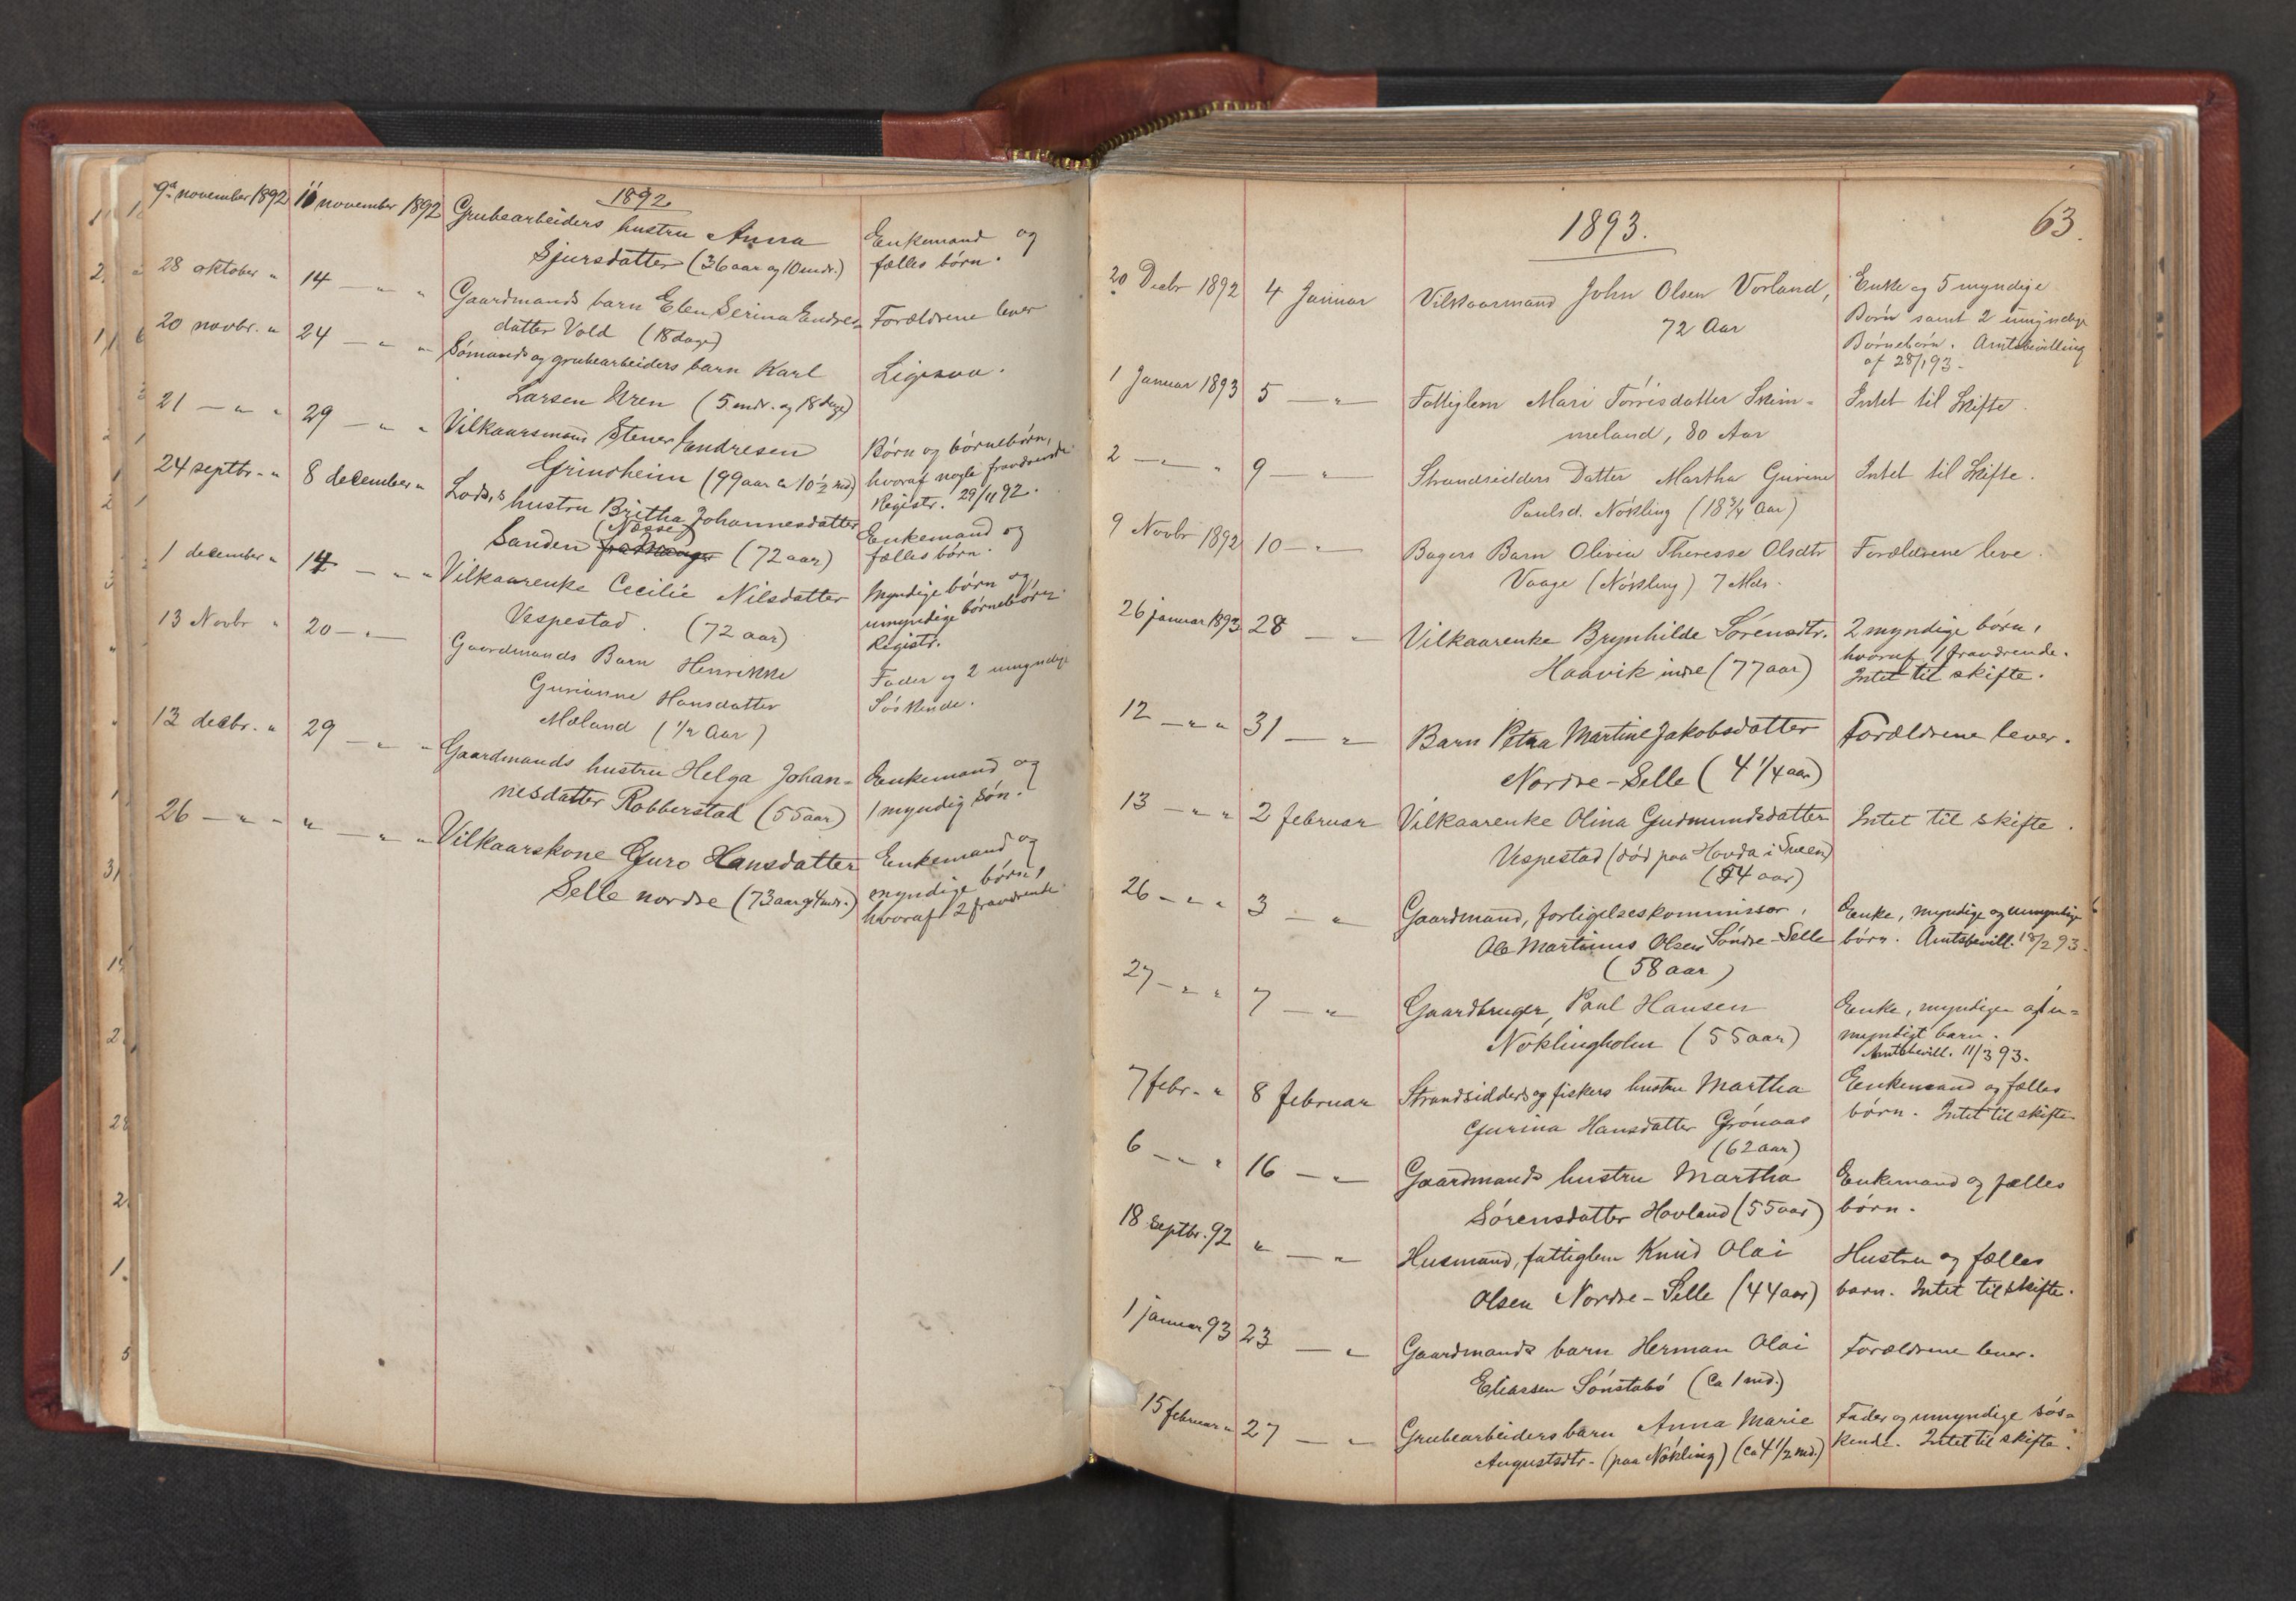 1892
9de november 1892 11 november 1892 Grubearbeiders hustru Anna Enkemand og
Sjursdatter (36 aar og 10 mdr.) fælles børn.
28 oktober " 14 — " " Gaardmands barn Elen Serina Endres- Forældrene lever
datter Vold (18 dage)
20 novbr. " 24 — " " Sömands og grubearbeiders barn Karl Ligesaa.
Larsen Uren (5 mdr. og 18 dage)
21 — " " 29 — " " Vilkaarsmand Stener Endresen Børn og børnebørn,
Grindheim (99 aar ca 10 1/2 md) hvoraf nogle fraværende
Registr. 29/11 92.
24 septbr. " 8 december " Lods's hustru Britha Johannesdatter Enkemand og
(Næsse)
Sanden fra Manger (72 aar) fælles børn.
1 december " 14 — " " Vilkaarenke Cecilie Nilsdatter Myndige børn og
Vespestad. (72 aar) umyndige børnebørn.
Registr.
13 Novbr " 20 — " — Gaardmands Barn Henrikke Fader og 2 umyndige
Gurianne Hansdatter Søskende.
Mæland (1/2 Aar)
12 decbr. " 29 — " " Gaardmands hustru Helga Johan- Enkemand og
nesdatter Robberstad (55 aar) 1 myndig søn.
26 — " " " — " " Vilkaarskone Guro Hansdatter Enkemand og
Selle nordre (73 aar og 4 mdr.) myndige børn,
hvoraf 2 fraværende
63.
1893.
20 Decbr 1892 4 Januar Vilkaarmand John Olsen Vorland, Enke og 5 myndige
72 Aar Børn samt 2 umyndige
Børnebørn. Amtsbevilling
af 28/1 93.
1 Januar 1893 5 — " — Fattiglem Mari Torrisdatter Skim- Intet til Skifte.
meland, 80 Aar
2 — — " 9 — " Strandsidders Datter Martha Gurine Intet til Skifte.
Paulsd. Nökling (18 3/4 Aar)
9 Novbr 1892 10 — " — Bagers Barn Olivia Theresse Olsdtr Forældrene leve.
Vaage (Nökling) 7 Mdr.
26 januar 1893 28 — " Vilkaarenke Brynhilde Sörensdtr. 2 myndige børn,
Haavik indre (77 aar) hvoraf 1 fraværende.
Intet til skifte.
12 — " " 31 — " Barn Petra Martine Jakobsdatter Forældrene lever.
Nordre-Selle (4 1/4 aar)
13 — " " 2 februar Vilkaarenke Olina Gudmundsdatter Intet til skifte.
Vespestad (død paa Hovda i Sveen)
(54 aar)
26 — " " 3 — " Gaardmand, forligelseskommissær, Enke, myndige og umyndige
Ole Martinus Olsen Söndre-Selle børn. Amtsbevill. 18/2 93.
(58 aar)
27 — " " 7 — " Gaardbruger, Paul Hansen Enke, myndige og 1 u-
Nöklingholm (55 aar) myndigt barn.
Amtsbevill. 11/3 93.
7 febr. " 8 februar Strandsidders og fiskers hustru Martha Enkemand og fælles
Gurina Hansdatter Grönaas børn. Intet til skifte
(62 aar)
6 — " " 16 — " Gaardmands hustru Martha Enkemand og fælles
Sörensdatter Hovland (55 aar) børn.
18 septbr. 92 " — " Husmand, fattiglem Knud Olai Hustru og fælles
Olsen Nordre-Selle (44 aar) barn. Intet til skifte.
1 januar 93 23 — " Gaardmands barn Herman Olai Forældrene lever.
Eliassen Sönstabö (ca 1 md.)
15 februar " 27 — " Grubearbeiders barn Anna Marie Fader og umyndige søs-
Augustsdtr. (paa Nökling) (ca 4 1/2 md.) kende. Intet til skifte.